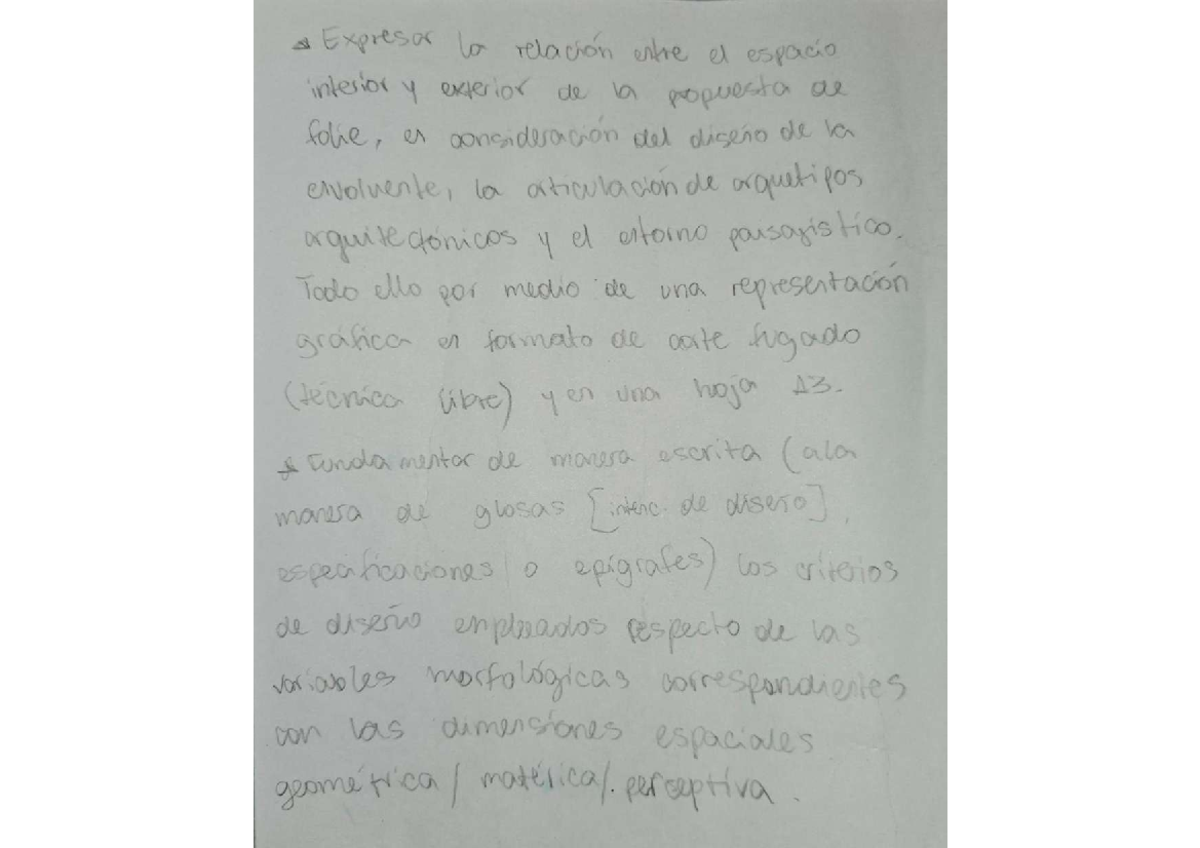 Expresar la relación entre el espacio
interior y exterior de la propuesta de
folie, en consideración del diseño de la
envolvente, la articulación de arquetipos
arquitectónicos y el entorno paisajístico.
Todo ello por medio de una representación
gráfica en formato de corte fugado
(técnica libre) y en una hoja A3.
Fundamentar de manera escrita (a la
manera de glosas [intenc. de diseño],
especificaciones o epígrafes) los criterios
de diseño empleados respecto de las
variables morfológicas correspondientes
con las dimensiones espaciales
geométrica / matérica /. perceptiva.